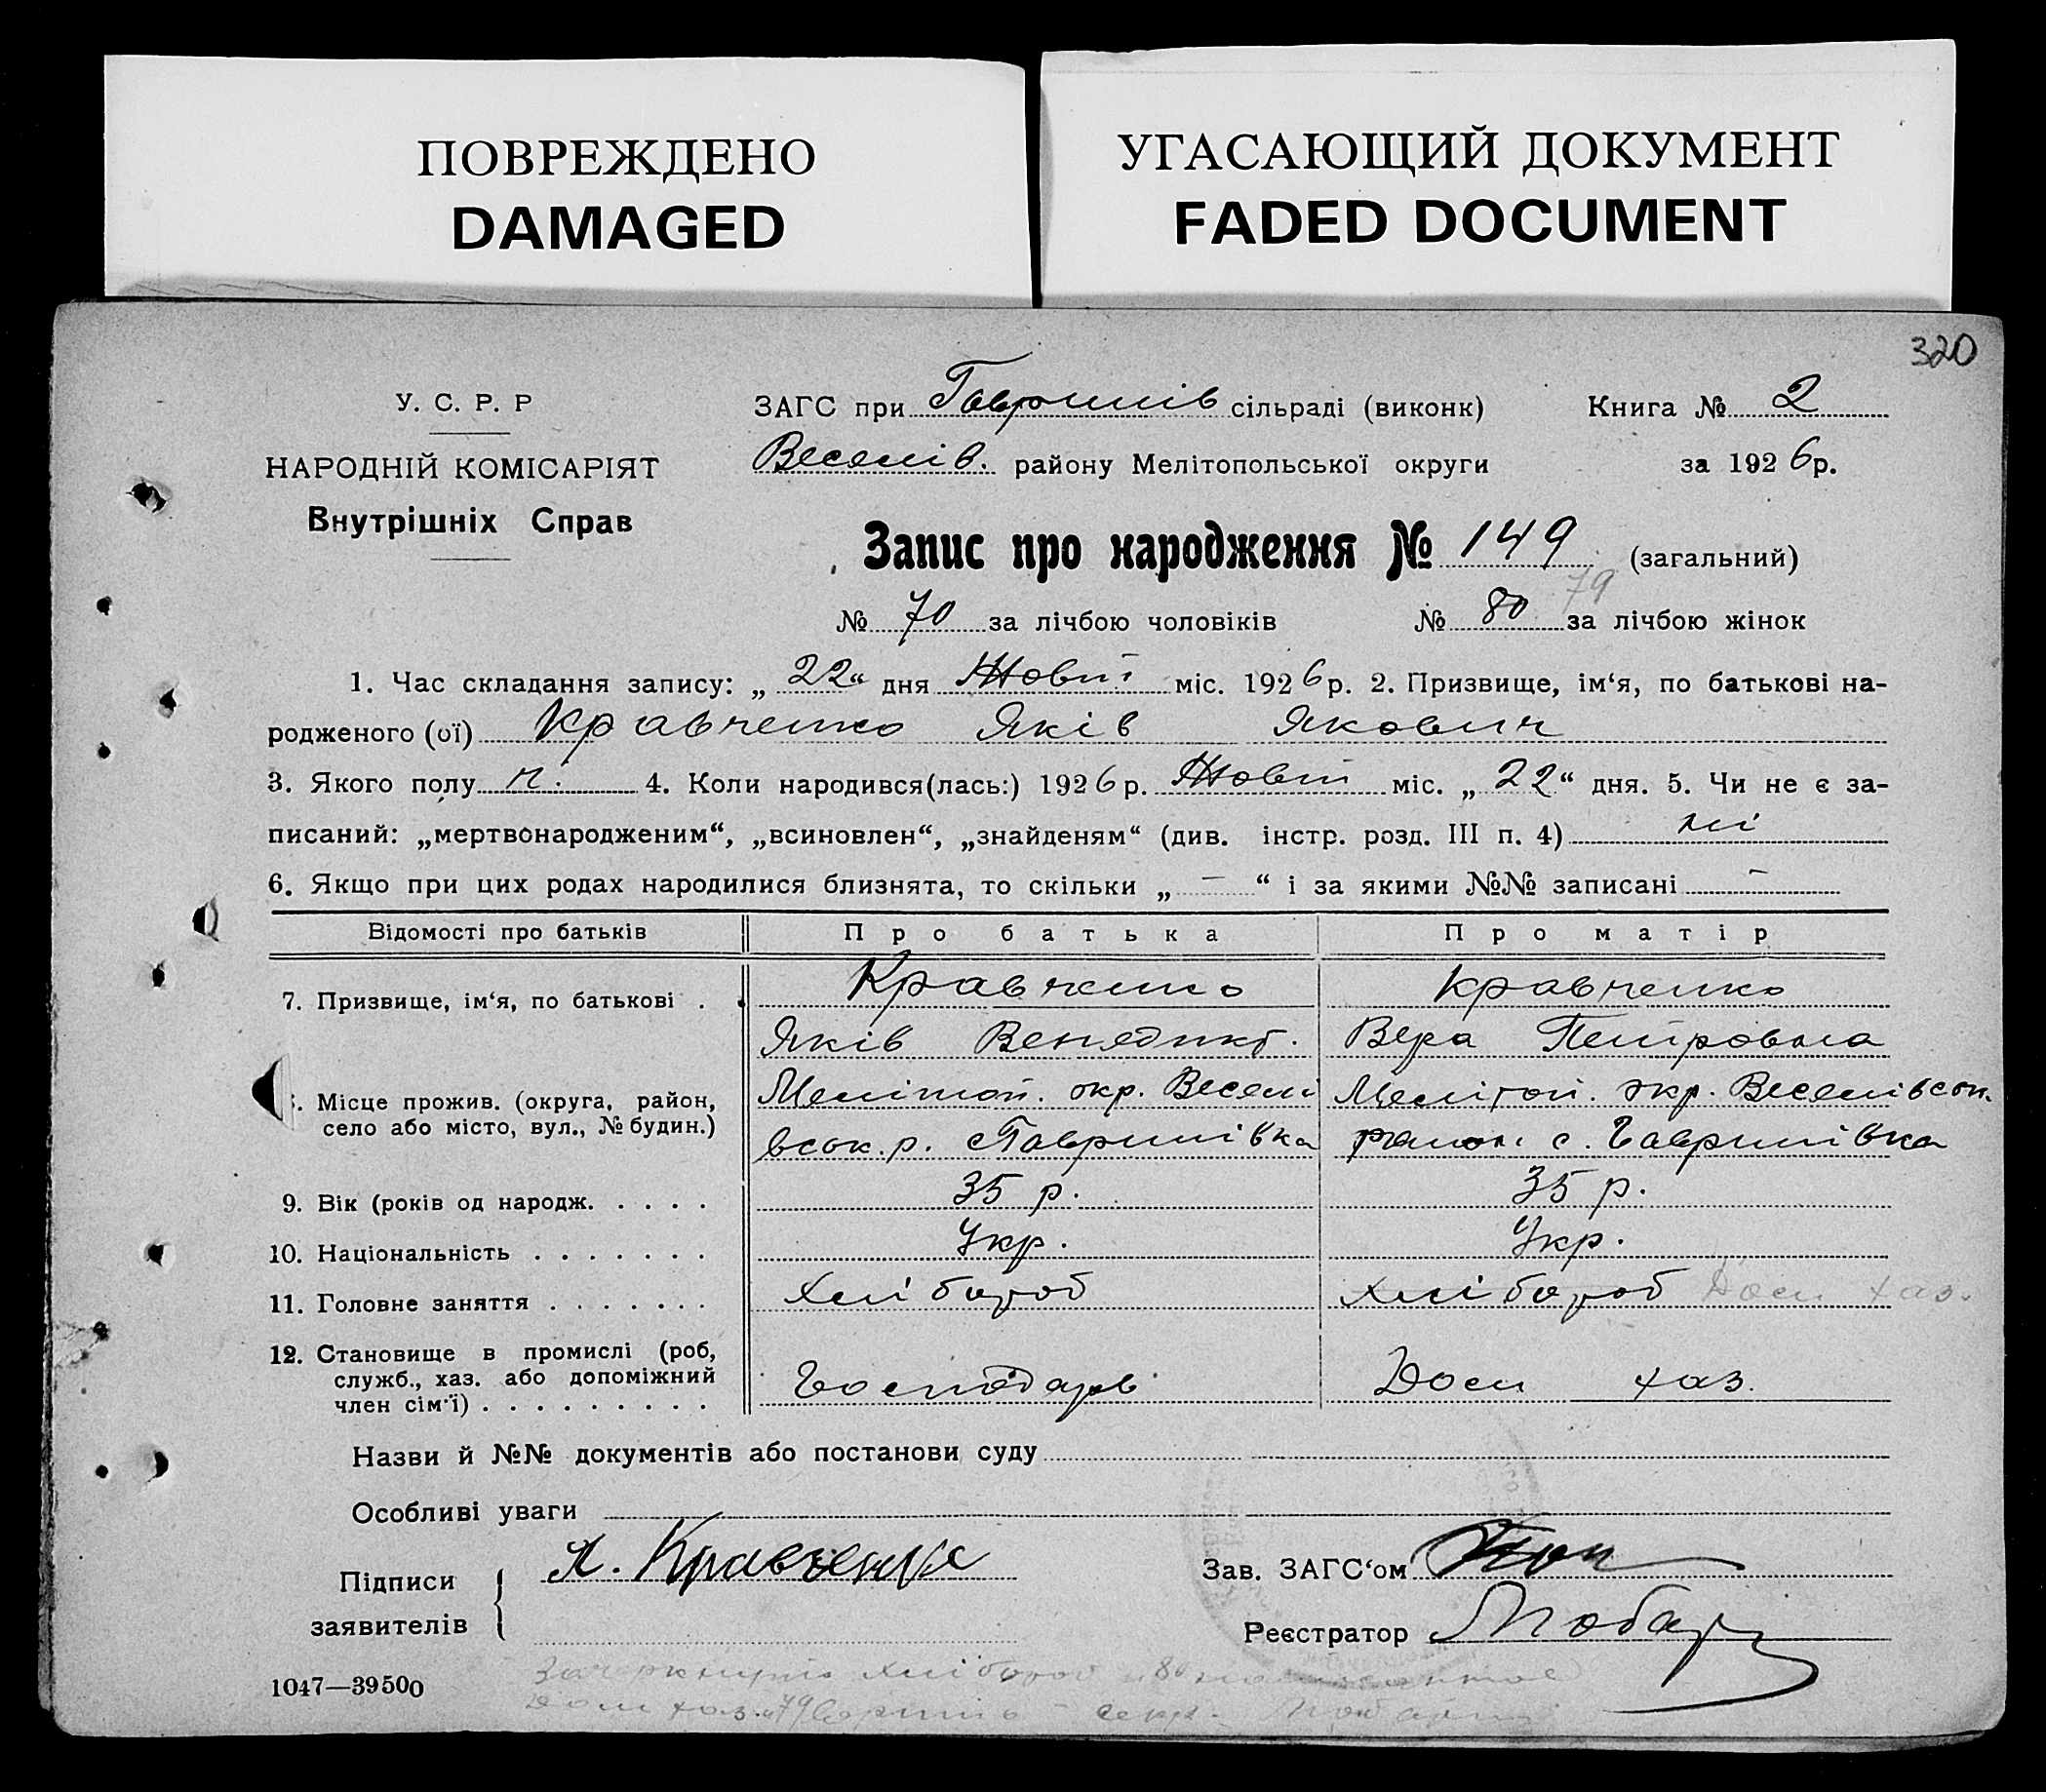 ПОВРЕЖДЕНО
DAMAGED
УГАСАЮЩИЙ ДОКУМЕНТ
FADED DOCUMENT
320
У. С. Р. Р
НАРОДНІЙ КОМІСАРІЯТ
Внутрішніх Справ
ЗАГС при Гаврилів сільраді (виконк) Книга № 2
Веселів. району Мелітопольської округи за 1926р.
Запис про народження № 149 (загальний)
79
№ 70 за лічбою чоловіків № 80 за лічбою жінок
1. Час складання запису: „ 22“ дня Жовт міс. 1926р. 2. Призвище, ім‘я, по батькові на-
родженого (ої) Кравченко Яків Якович
3. Якого полу ч. 4. Коли народився(лась:) 1926р. Жовт міс. „ 22“ дня. 5. Чи не є за-
писаний: „мертвонародженим“, „всиновлен“, „знайденям“ (див. інстр. розд. III п. 4) ні
6. Якщо при цих родах народилися близнята, то скільки „ — “ і за якими №№ записані —
Відомості про батьків Про батька Про матір
7. Призвище, ім‘я, по батькові . Кравченко Кравченко
Яків Венедикт. Вера Петровна
8. Місце прожив. (округа, район, Мелітоп. окр. Веселі Мелітоп. окр. Веселівськ.
село або місто, вул., № будин.) вськ. р. с Гаврилівка район с. Гаврилівка
9. Вік (років од народж. . . . . 35 р. 35 р.
10. Національність . . . . . . . Укр. Укр.
11. Головне заняття . . . . . . . Хлібороб Хлібороб Дом хаз.
12. Становище в промислі (роб,
служб., хаз. або допоміжний Господарь Дом хаз.
член сім‘ї) . . . . . . . . .
Назви й №№ документів або постанови суду
Особливі уваги
Підписи Я. Кравченко Зав. ЗАГС‘ом
заявителів Реєстратор
1047—39500 Зачеркнуто хлібороб и 80
Дом хаз. и 79 секр.